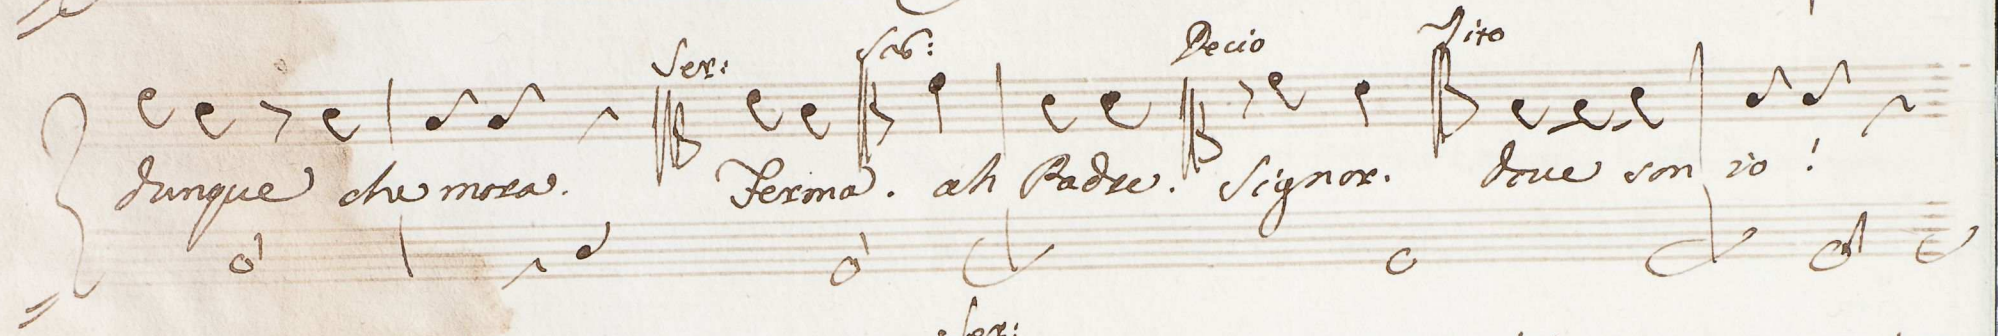 Ser: Scib: Decio Tito
dunque che mora. Ferma. ah Padre. Signor. doue son io!
Ser: